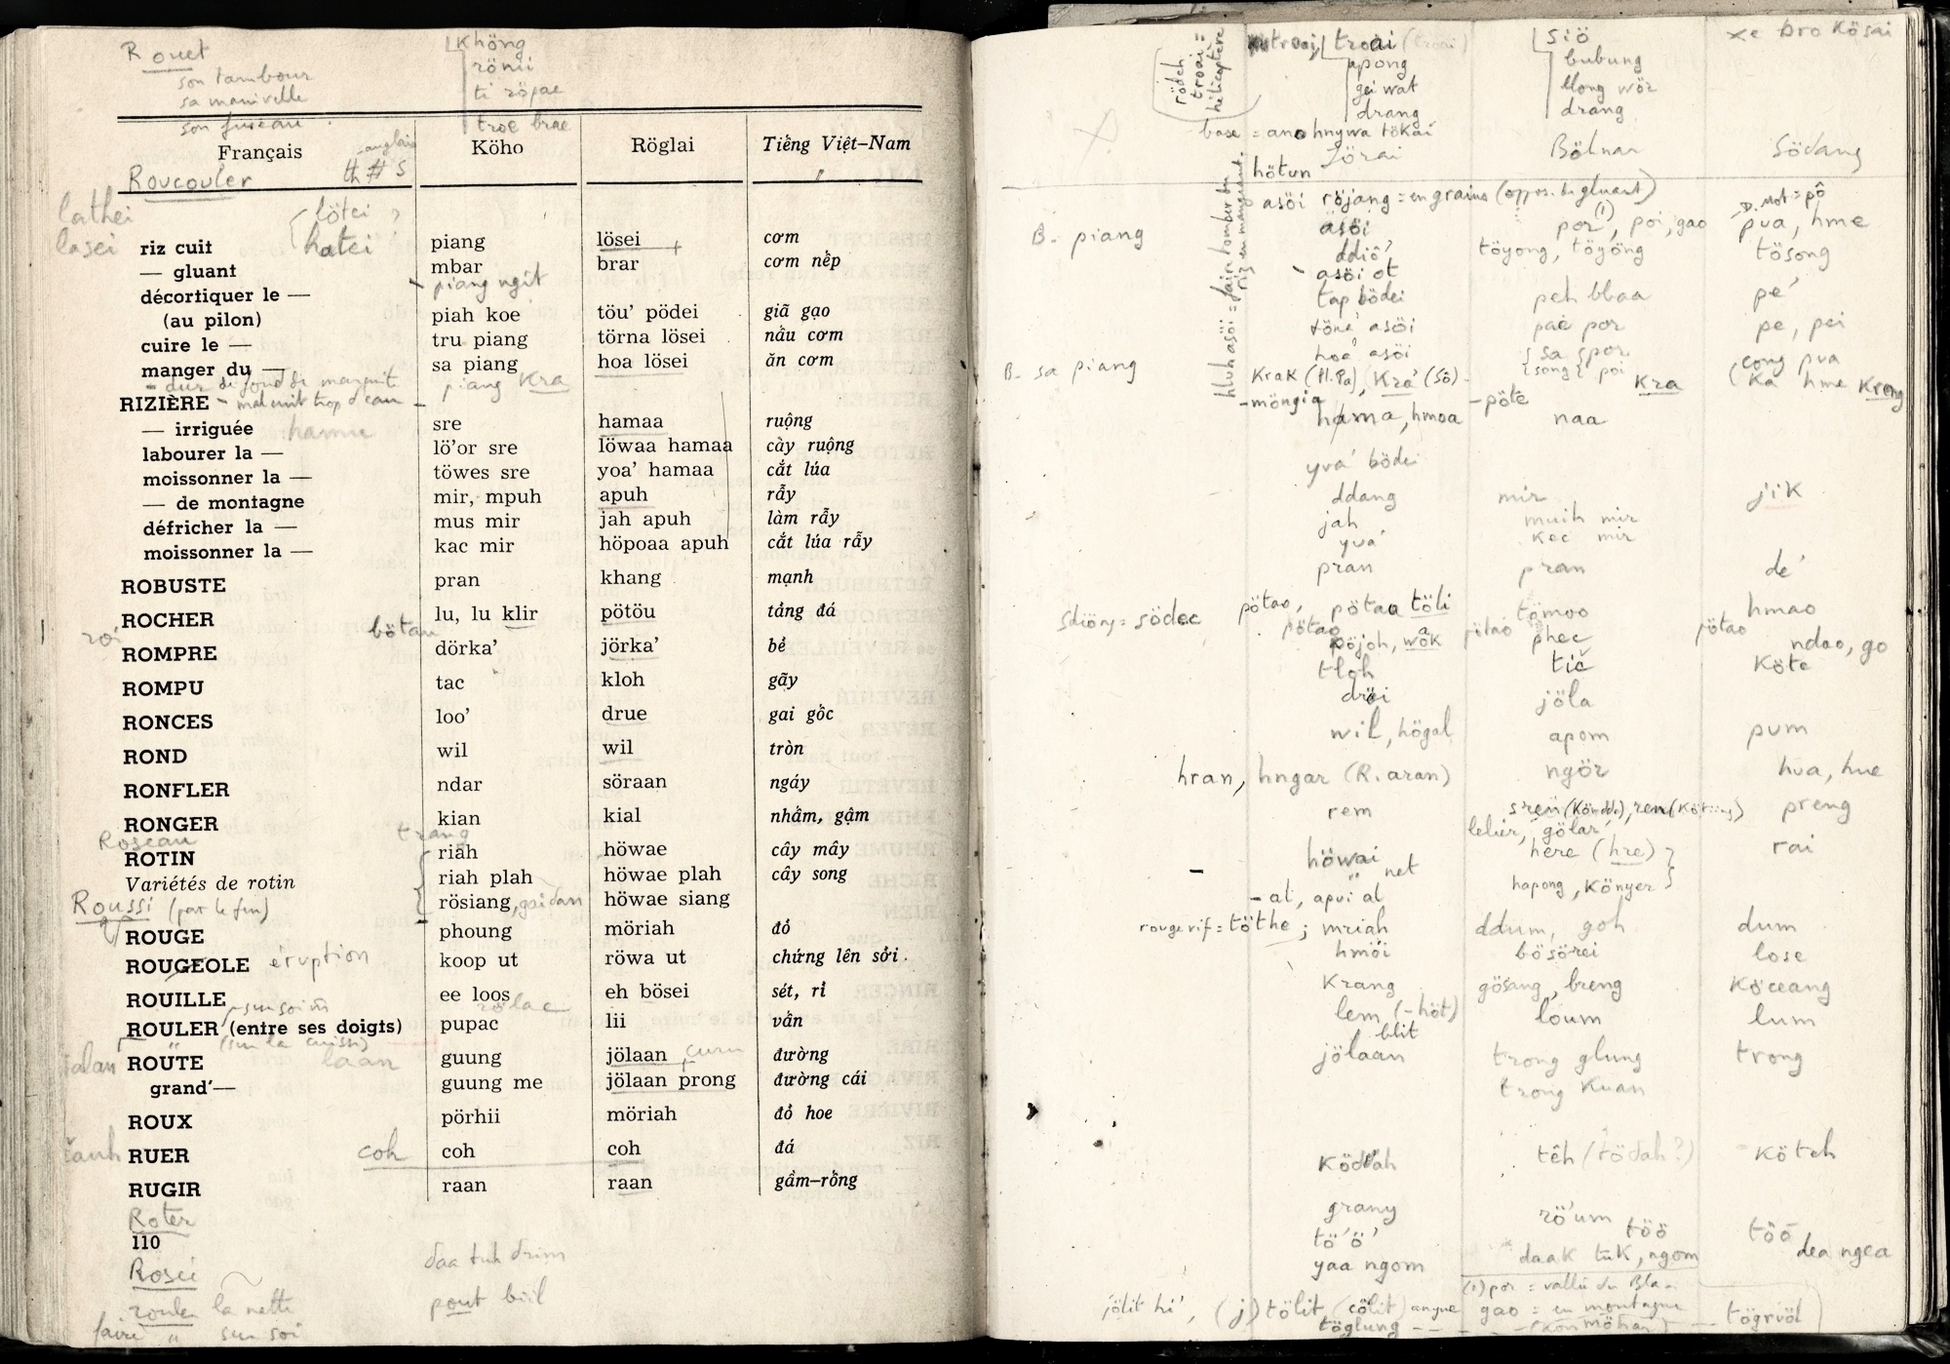 Rouet Khöng
son tambour römii
sa manivelle ti röpae
son fuseau troe brae
Français Köho Röglai Tiếng Việt–Nam
anglais
Roucouler th # s
lathei lötei
lasei hatei
riz cuit piang lösei cơm
— gluant mbar brar cơm nếp
piang ngit
décortiquer le —
(au pilon) piah koe töu' pödei giã gạo
cuire le — tru piang törna lösei nấu cơm
manger du — sa piang hoa lösei ăn cơm
piang kra
RIZIÈRE
— irriguée sre hamaa ruộng
labourer la — lö'or sre löwaa hamaa cày ruộng
moissonner la — töwes sre yoa' hamaa cắt lúa
— de montagne mir, mpuh apuh rẫy
défricher la — mus mir jah apuh làm rẫy
moissonner la — kac mir höpoaa apuh cắt lúa rẫy
ROBUSTE pran khang mạnh
ROCHER lu, lu klir pötöu tảng đá
bötau
ROMPRE dörka' jörka' bẻ
ROMPU tac kloh gãy
RONCES loo' drue gai gốc
ROND wil wil tròn
RONFLER ndar söraan ngáy
RONGER kian kial nhấm, gậm
Roseau trang
ROTIN riah höwae cây mây
Variétés de rotin riah plah höwae plah cây song
Roussi (par le feu) rösiang, höwae siang
ROUGE phoung möriah đỏ
ROUGEOLE éruption koop ut röwa ut chứng lên sởi.
ROUILLE ee loos eh bösei sét, rỉ
rölac
ROULER (entre ses doigts) pupac lii vấn
" (sur la cuisse)
jalan ROUTE laan guung jölaan đường
grand'— guung me jölaan prong đường cái
ROUX pörhii möriah đỏ hoe
RUER coh coh coh đá
RUGIR raan raan gầm–rống
Roter
110
Rosée daa tuh drim
rouler la natte pout biil
faire " sur soi
rödeh troai = hélicoptère
troai (troai) siö xe Dro Kösai
apong bubung
gei wat klong wör
drang drang
base = ano hnywa tökai
Jörai Böhnar Södang
hötun
asöi röjang = en grains (oppos. de gluant)
hluh asöi = faire tomber du riz en mangeant.
D. Mot = pô
B. piang asöi por (1), poi, gao pva, hme
ddiô' töyong, töyöng tösong
asöi ot
tap bödei peh bbaa pe'
töna' asöi paè por pe, pei
B. sa piang hoa' asöi sa por cong pva
song poi ka hme
Krak (Pl. Pa), Kra' (Sô) Kra Kreng
-möngia -pöte
hama, hmoa naa
yva' bödei
ddang mir jik
jah muih mir
yva' kec mir
pran pran de'
södec pötao, pötao töli tömoo hmao
pötao pötao pötao
pöjoh, wâk phec ndao, go
tloh tic Köte
dröi jöla
wil, högal apom pum
hran, hngar (R. aran) ngör hva, hue
rem preng
lehier, gölar
höwai net here (hre) rai
hapong, Könyer
- at, apui at
rouge vif = töthe; mriah ddum, goh dum
hmöi bösörei lose
Krang gösang, breng Köceang
lem (-höt) loum lum
blit
jölaan trong glung trong
trong Kuan
ködah têh (tödah?) köteh
grany rö'um
tö'ö' töö töö
yaa ngom daak tuk, ngom dea ngea
(1) por = vallée du Bla
jölit hi', (j) tölit, (cölit) gao = en montagne tögrvöl
töglung (Kon möhar)